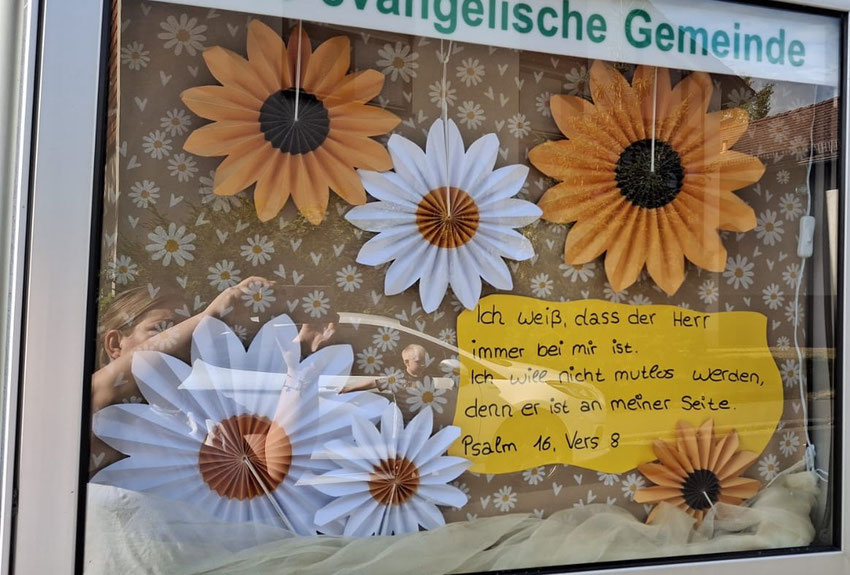 evangelische Gemeinde
Ich weiß, dass der Herr
immer bei mir ist.
Ich will nicht mutlos werden,
denn er ist an meiner Seite.
Psalm 16, Vers 8